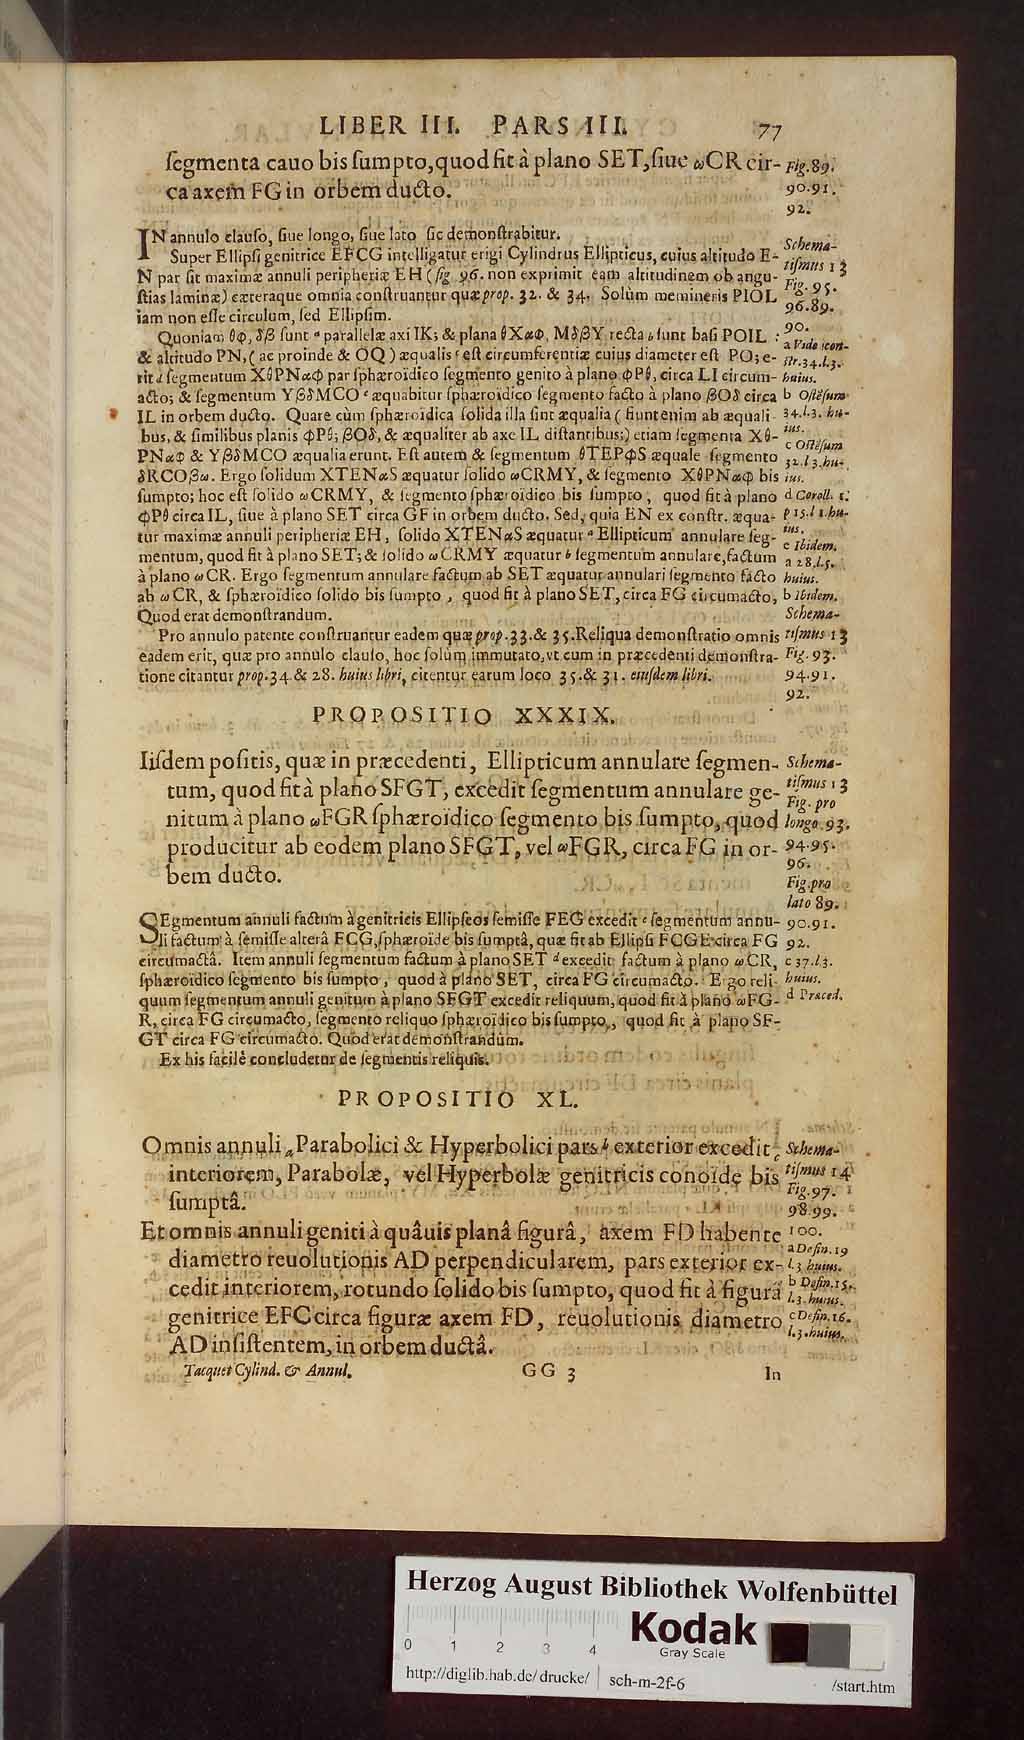 LIBER III. PARS III. 77
ſegmenta cauo bis ſumpto, quod fit à plano SET, ſiue ωCR cir-
ca axem FG in orbem ducto.
Fig. 89.
90. 91.
92.
IN annulo clauſo, ſiue longo, ſiue lato ſic demonſtrabitur.
Super Ellipſi genitrice EFCG intelligatur erigi Cylindrus Ellipticus, cuius altitudo E-
N par ſit maximæ annuli peripheriæ EH (fig. 96. non exprimit eam altitudinem ob angu-
ſtias laminæ) cæteraque omnia conſtruantur quæ prop. 32. & 34. Solùm memineris PIOL
iam non eſſe circulum, ſed Ellipſim.
Quoniam θφ, δβ ſunt a parallelæ axi IK; & plana θXαΦ, MδβY recta b ſunt baſi POIL :
& altitudo PN, (ac proinde & OQ) æqualis c eſt circumferentiæ cuius diameter eſt PO; e-
rit d ſegmentum XθPNαΦ par ſphæroïdico ſegmento genito à plano φPθ, circa LI circum-
acto; & ſegmentum YβδMCO e æquabitur ſphæroïdico ſegmento facto à plano βOδ circa
IL in orbem ducto. Quare cùm ſphæroïdica ſolida illa ſint æqualia (fiunt enim ab æquali-
bus, & ſimilibus planis φPθ; βOδ, & æqualiter ab axe IL diſtantibus;) etiam ſegmenta Xθ-
PNαΦ & YβδMCO æqualia erunt. Eſt autem & ſegmentum θTEPφS æquale ſegmento
δRCOβω. Ergo ſolidum XTENαS æquatur ſolido ωCRMY, & ſegmento XθPNαφ bis
ſumpto; hoc eſt ſolido ωCRMY, & ſegmento ſphæroïdico bis ſumpto, quod fit à plano
ΦPθ circa IL, ſiue à plano SET circa GF in orbem ducto. Sed, quia EN ex conſtr. æqua-
tur maximæ annuli peripheriæ EH, ſolido XTENαS æquatur a Ellipticum annulare ſeg-
mentum, quod fit à plano SET; & ſolido ωCRMY æquatur b ſegmentum annulare, factum
à plano ωCR. Ergo ſegmentum annulare factum ab SET æquatur annulari ſegmento facto
ab ωCR, & ſphæroïdico ſolido bis ſumpto, quod fit à plano SET, circa FG circumacto,
Quod erat demonſtrandum.
Pro annulo patente conſtruantur eadem quæ prop. 33. & 35. Reliqua demonſtratio omnis
eadem erit, quæ pro annulo clauſo, hoc ſolùm immutato, vt cum in præcedenti demonſtra-
tione citantur prop. 34. & 28. huius libri, citentur earum loco 35. & 31. eiuſdem libri.
Schema-
tiſmus 13
Fig. 95.
96. 89.
90.
a Vide con-
ſtr. 34. l. 3.
huius.
b Oſtēſum
34. l. 3. hu-
ius.
c Oſtēſum
32. l. 3. hu-
ius.
d Coroll. 1.
p 15. l 1. hu-
ius.
e Ibidem.
a 28. l. 5.
huius.
b Ibidem.
Schema-
tiſmus 13
Fig. 93.
94. 91.
92.
PROPOSITIO XXXIX.
Iiſdem poſitis, quæ in præcedenti, Ellipticum annulare ſegmen-
tum, quod fit à plano SFGT, excedit ſegmentum annulare ge-
nitum à plano ωFGR ſphæroïdico ſegmento bis ſumpto, quod
producitur ab eodem plano SFGT, vel ωFGR, circa FG in or-
bem ducto.
Schema-
tiſmus 13
Fig. pro
longo 93.
94. 95.
96.
Fig. pro
lato 89.
90. 91.
92.
c 37. l. 3.
huius.
d Præced.
SEgmentum annuli factum à genitricis Ellipſeos ſemiſſe FEG excedit c ſegmentum annu-
li factum à ſemiſſe alterâ FCG, ſphæroïde bis ſumptâ, quæ fit ab Ellipſi FCGE circa FG
circumactâ. Item annuli ſegmentum factum à plano SET d excedit factum à plano ωCR,
ſphæroïdico ſegmento bis ſumpto, quod à plano SET, circa FG circumacto. Ergo reli-
quum ſegmentum annuli genitum à plano SFGT excedit reliquum, quod fit à plano ωFG-
R, circa FG circumacto, ſegmento reliquo ſphæroïdico bis ſumpto, quod fit à plano SF-
GT circa FG circumacto. Quod erat demonſtrandum.
Ex his facilè concludetur de ſegmentis reliquis.
PROPOSITIO XL.
Omnis annuli a Parabolici & Hyperbolici pars b exterior excedit c
interiorem, Parabolæ, vel Hyperbolæ genitricis conoïde bis
ſumptâ.
Et omnis annuli geniti à quâuis planâ figurâ, axem FD habente
diametro reuolutionis AD perpendicularem, pars exterior ex-
cedit interiorem, rotundo ſolido bis ſumpto, quod fit à figurâ
genitrice EFC circa figuræ axem FD, reuolutionis diametro
AD inſiſtentem, in orbem ductâ.
Schema-
tiſmus 14
Fig. 97.
98. 99.
100.
a Defin. 19
l. 3 huius.
b Defin. 15.
l. 3. huius.
c Defin. 16.
l. 3. huius.
Tacquet Cylind. & Annul. GG 3 In
Herzog August Bibliothek Wolfenbüttel
0 1 2 3 4
Kodak
Gray Scale
http://diglib.hab.de/drucke/ sch-m-2f-6 /start.htm